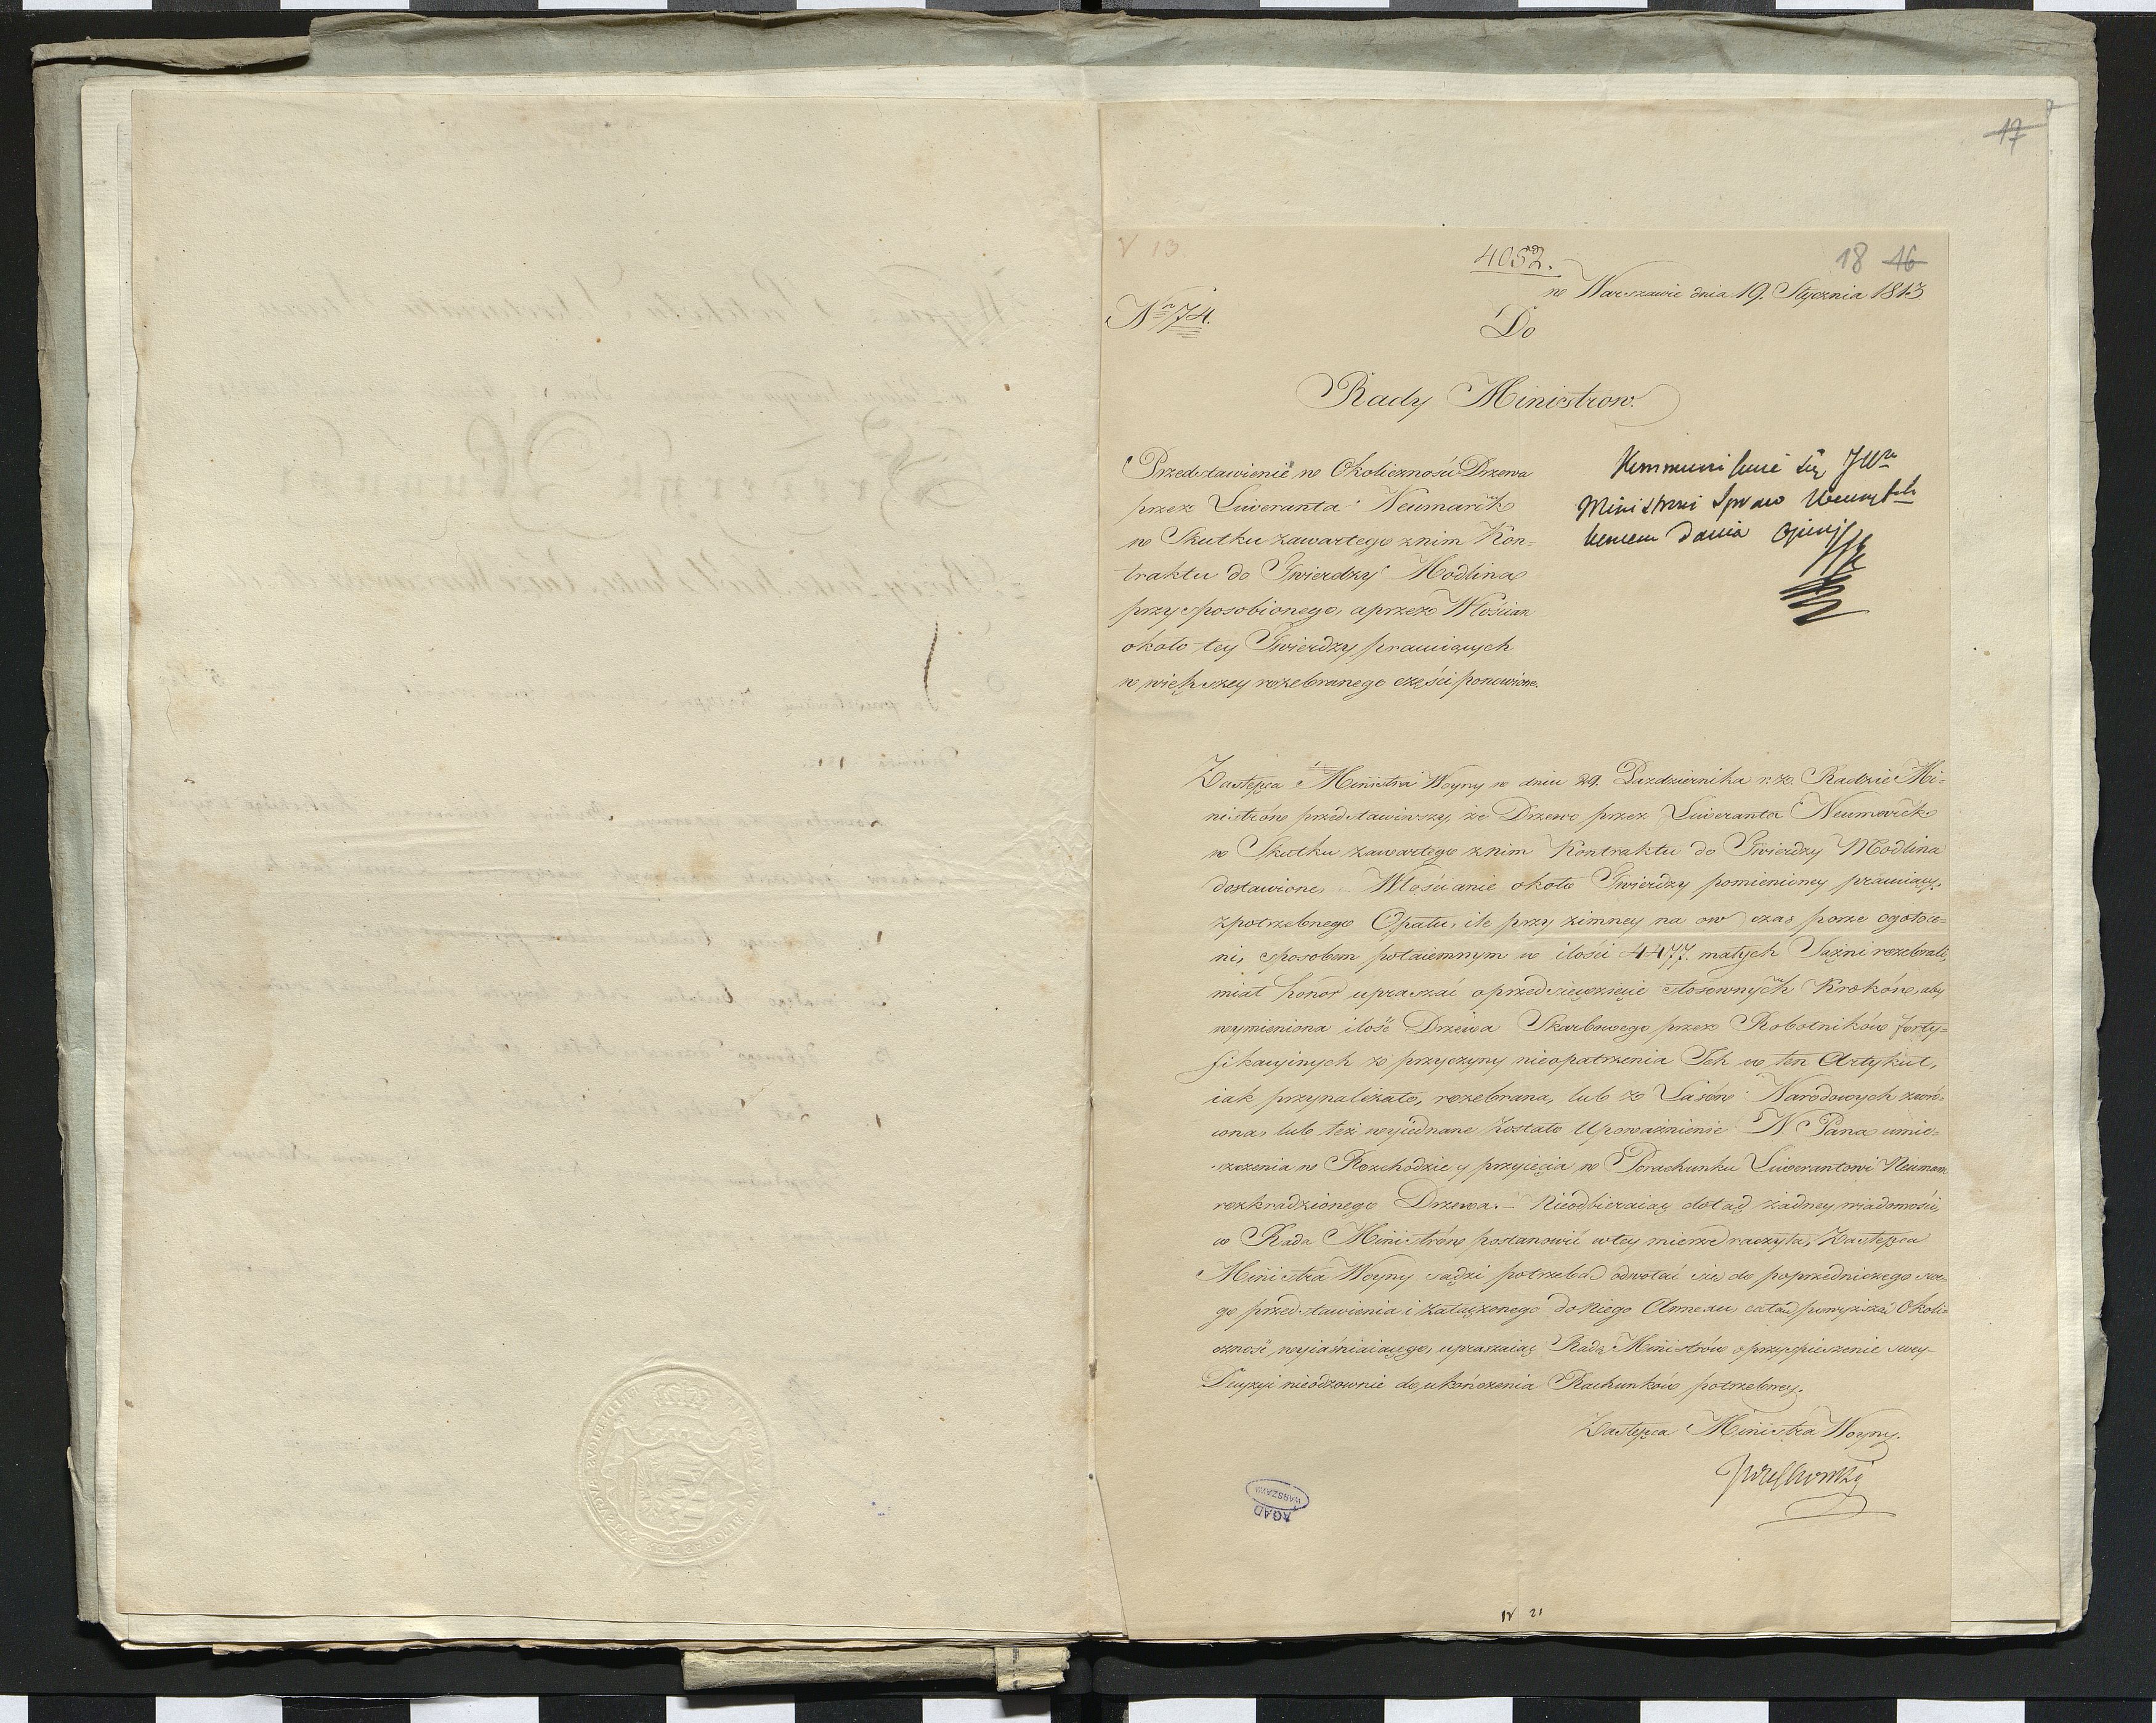 17
V 13.
4052.
18 16
w Warszawie dnia 19. Stycznia 1813
Nro 74.
Do
Rady Ministrow.
Przedstawienie w Okoliczności Drzewa
przez Liweranta Neumarck
w Skutku zawartego z nim Kon=
traktu do Twierdzy Modlina
przysposobionego, a przez Włościan
około tey Twierdzy pracuiących
w większey rozebranego części ponowione.
Kommunikuie się JW
Ministrowi Spraw Wewnętrz
końcem dania Opinij
Zastępca Ministra Woyny w dniu 29. Pazdziernika r. z. Radzie Mi=
nistrów przedstawiwszy, że Drzewo przez Liweranta Neumarck
w Skutku zawartego z nim Kontraktu do Twierdzy Modlina
dostawione, Włościanie około Twierdzy pomienioney pracuiący,
z potrzebnego Opału, ile przy zimney na ow czas porze ogołoce=
ni, sposobem potaiemnym w ilości 4477. małych Sążni rozebrali,
miał honor upraszać o przedsięwzięcie stosownych Kroków, aby
wymieniona ilość Drzewa Skarbowego przez Robotników forty=
fikacyinych z przyczyny nieopatrzenia Ich w ten Artykuł,
iak przynależało, rozebrana, lub z Lasów Narodowych zwró=
cona, lub też wyiednane zostało Upoważnienie N. Pana umie=
szczenia w Rozchodzie y przyięcia w Porachunku Liwerantowi Neumarck
rozkradzionego Drzewa.— Nieodbieraiąc dotąd żadney wiadomości,
co Rada Ministrów postanowić w tey mierze raczyła, Zastępca
Ministra Woyny sądzi potrzebą odwołać się do poprzedniczego swe=
go przedstawienia i załączonego do Niego Annexu, całą powyższą Okoli=
czność wyiaśniaiącego, upraszaiąc Radę Ministrów o przyspieszenie swey
Decyzyi nieodzownie do ukończenia Rachunków potrzebney.
Zastępca Ministra Woyny.
AGAD
WARSZAWA